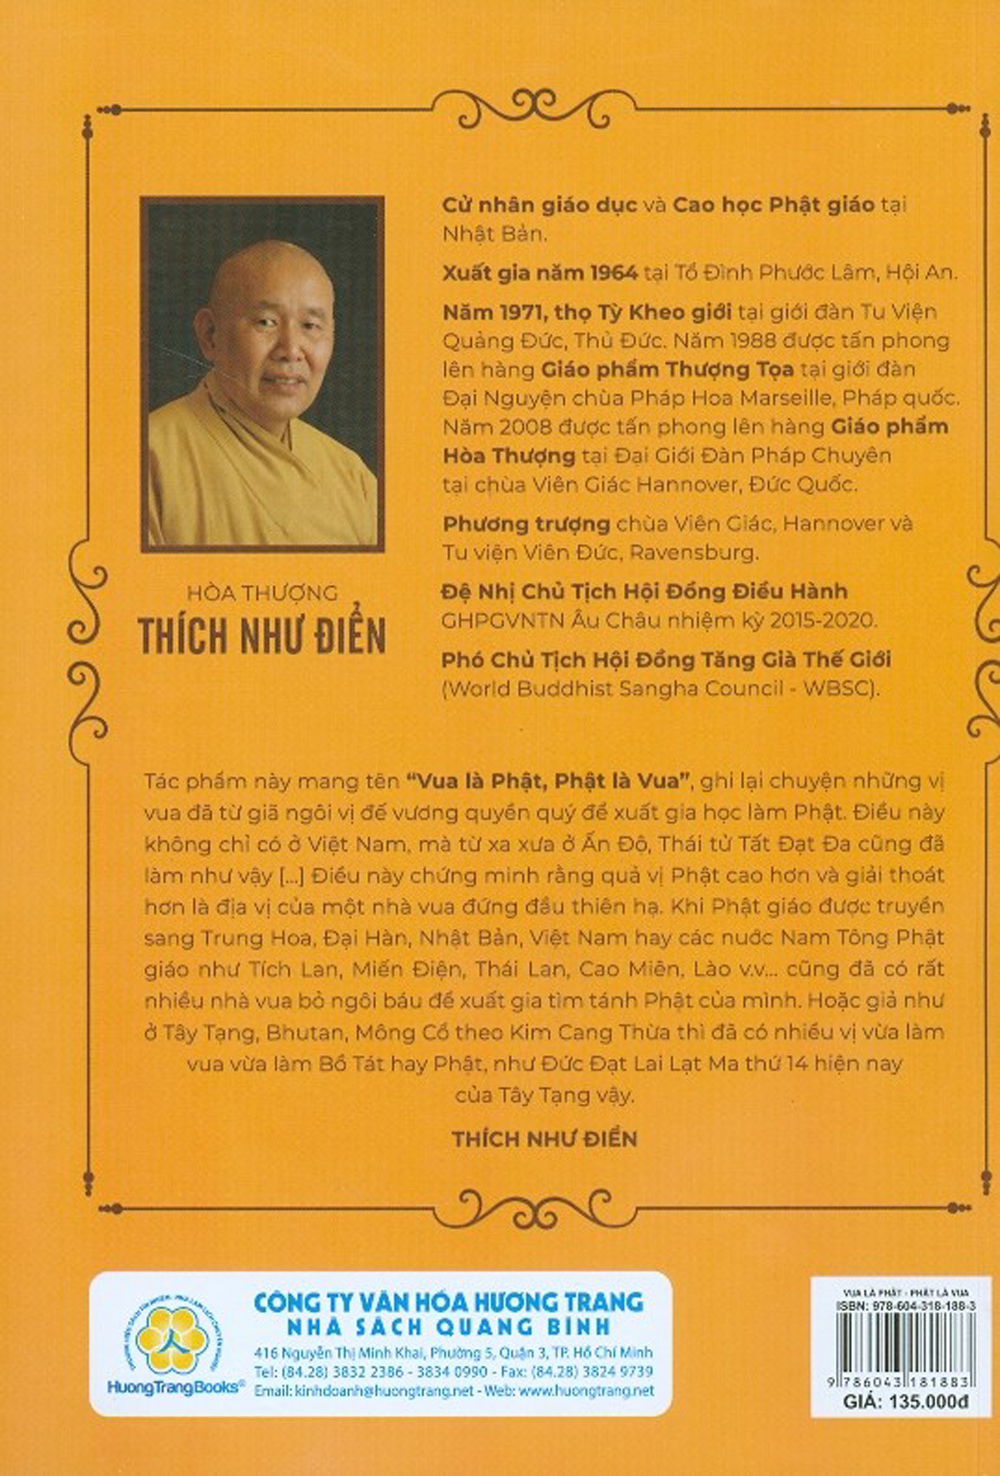 Cử nhân giáo dục và Cao học Phật giáo tại
Nhật Bản.
Xuất gia năm 1964 tại Tổ Đình Phước Lâm, Hội An.
Năm 1971, thọ Tỳ Kheo giới tại giới đàn Tu Viện
Quảng Đức, Thủ Đức. Năm 1988 được tấn phong
lên hàng Giáo phẩm Thượng Tọa tại giới đàn
Đại Nguyện chùa Pháp Hoa Marseille, Pháp quốc.
Năm 2008 được tấn phong lên hàng Giáo phẩm
Hòa Thượng tại Đại Giới Đàn Pháp Chuyên
tại chùa Viên Giác Hannover, Đức Quốc.
Phương trượng chùa Viên Giác, Hannover và
Tu viện Viên Đức, Ravensburg.
Đệ Nhị Chủ Tịch Hội Đồng Điều Hành
GHPGVNTN Âu Châu nhiệm kỳ 2015-2020.
Phó Chủ Tịch Hội Đồng Tăng Già Thế Giới
(World Buddhist Sangha Council - WBSC).
HÒA THƯỢNG
THÍCH NHƯ ĐIỂN
Tác phẩm này mang tên “Vua là Phật, Phật là Vua”, ghi lại chuyện những vị
vua đã từ giã ngôi vị đế vương quyền quý để xuất gia học làm Phật. Điều này
không chỉ có ở Việt Nam, mà từ xa xưa ở Ấn Độ, Thái tử Tất Đạt Đa cũng đã
làm như vậy [...] Điều này chứng minh rằng quả vị Phật cao hơn và giải thoát
hơn là địa vị của một nhà vua đứng đầu thiên hạ. Khi Phật giáo được truyền
sang Trung Hoa, Đại Hàn, Nhật Bản, Việt Nam hay các nước Nam Tông Phật
giáo như Tích Lan, Miến Điện, Thái Lan, Cao Miên, Lào v.v... cũng đã có rất
nhiều nhà vua bỏ ngôi báu để xuất gia tìm tánh Phật của mình. Hoặc giả như
ở Tây Tạng, Bhutan, Mông Cổ theo Kim Cang Thừa thì đã có nhiều vị vừa làm
vua vừa làm Bồ Tát hay Phật, như Đức Đạt Lai Lạt Ma thứ 14 hiện nay
của Tây Tạng vậy.
THÍCH NHƯ ĐIỂN
HuongTrangBooks®
CÔNG TY VĂN HÓA HƯƠNG TRANG
NHÀ SÁCH QUANG BÌNH
416 Nguyễn Thị Minh Khai, Phường 5, Quận 3, TP. Hồ Chí Minh
Tel: (84.28) 3832 2386 - 3834 0990 - Fax: (84.28) 3824 9739
Email: kinhdoanh@huongtrang.net - Web: www.huongtrang.net
VUA LÀ PHẬT - PHẬT LÀ VUA
ISBN: 978-604-318-188-3
9 786043 181883
GIÁ: 135.000đ